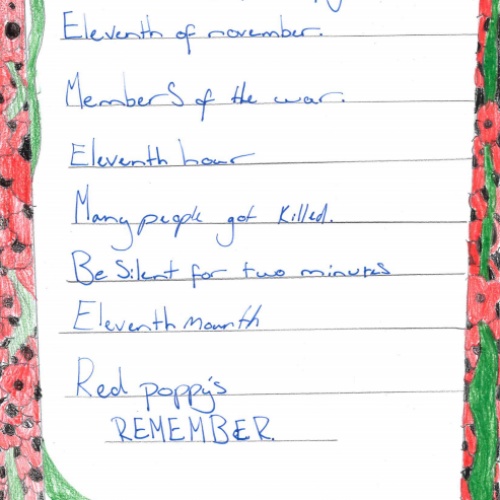 Eleventh of november.
Members of the war.
Eleventh hour
Many people got killed.
Be Silent for two minutes
Eleventh mounth
Red poppy's
REMEMBER.